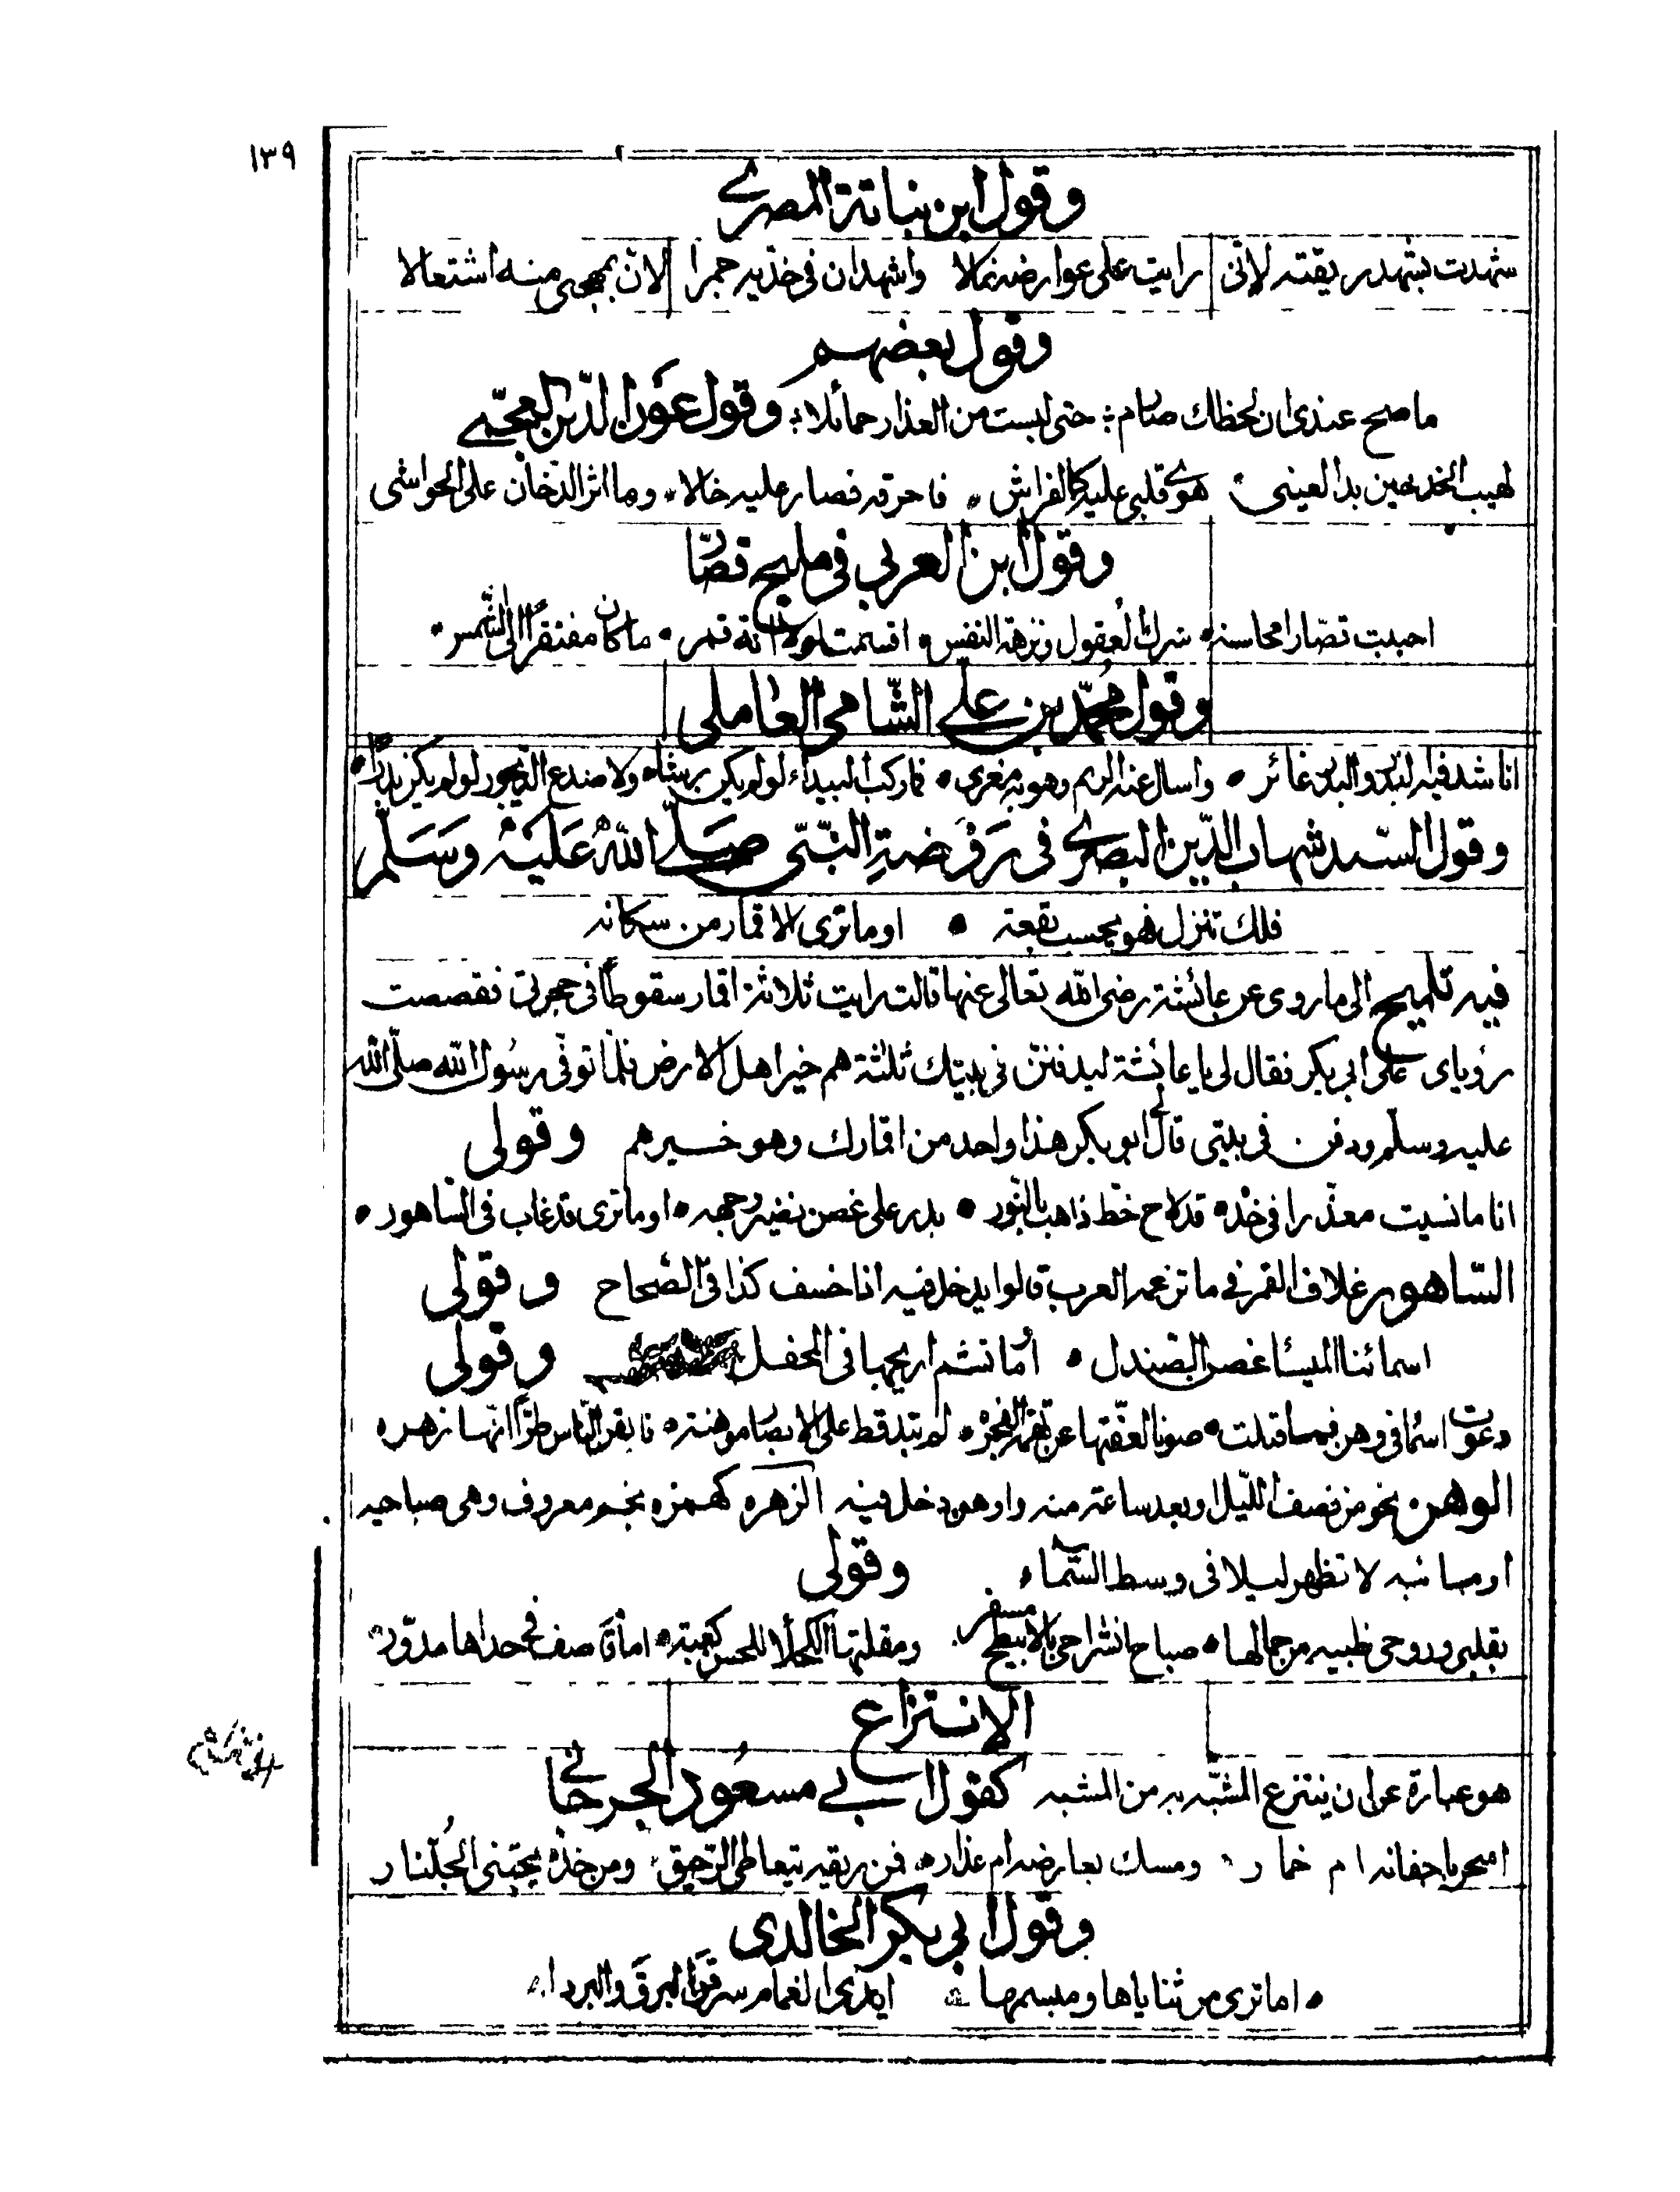 ١٣٩
وقول ابن نباتة المصرى
شهدت بشهد ريقته لانّى رايت على عوارضه نمالا واشهد ان فى خدّيه جمرا لانّ بمهجتى منه اشتعالا
وقول بعضهم
ما صح عندى ان لحظك صارم حتى لبست من العذار حمائلا وقول عون الدّين العجمى
لهيب الخد حين بدا لعينى هوى قلبى عليه كالفراش فاحرقه فصار عليه خالا وها اثر الدّخان على الحواشى
وقول ابن العربى فى مليح قصّار
احببت قصّارا محاسنه شرك العقول ونزهة النفس اقسمت لولا انّه قمر ما كان مفتقرًا الى الشّمس
وقول محمّد بن على الشّامى العاملى
اناشد فيه البدر والبدر غائر واسال عنه الريم وهو به مغرى فما ركب البيداء لو لم يكن رشاء ولا صدع الدّيجور لو لم يكن بدرًا
وقول السّيد شهاب الدّين البصرى فى رَوْضَةِ النّبّى صَلّى اللهُ عَلَيْهِ وَسَلّم
فلك تنزل فهو يحسب بقعة اوما ترى الاقمار من سكانه
فيه تلميح الى ما روى عن عائشة رضى الله تعالى عنها قالت رايت ثلاثة اقمار سقوطًا فى حجرتى فقصصت
رؤياى على ابى بكر فقال لى يا عائشة ليدفنن فى بيتك ثلثة هم خير اهل الارض فلمّا توفّى رسُول الله صلّى الله
عليه وسلّم ودفن فى بيتى قال لى ابو بكر هذا واحد من اقمارك وهو خيرهم وقولى
انا ما نسيت معذّرا فى خدّه قد لاح خطّ ذاهب بالنّور بدر على غصن نضير وجهه اوما ترى قد غاب فى السّاهور
السّاهور غلاف القمر فى ما تزعمه العرب قالوا يدخل فيه اذا خسف كذا فى الصّحاح وقولى
اسمائنا الميسا غصن الصندل امّا تشم اريجها فى المحفل وقولى
دعوت اسما فى وهن فما قبلت صونا لعفّتها عن تهمة الفجره لم تبد قط على الابصار موهنة فايقن النّاس طرًّا انّها زهره
الوهن نحو من نصف اللّيل او بعد ساعة منه واوهن دخل فيه الزهره كهمزه نجم معروف وهى صباحيه
او مسائيه لا تظهر ليلا فى وسط السّماء وقولى
بقلبى وروحى ظبيه من جمالها صباح انشراحى بالابيطح مسفر ومقلتها الكحلا للحسن كعبة اما قاصف فى احداها مدوّر
الانتزاع
هو عبارة عن ان ينتزع المشبّه به من المشبه كقول ابى مسعُود الجرجانى
اسحر باجفانه ام خمار ومسك بعارضه ام عذار فمن ريقه يتعاطى الرّحيق ومن خدّه يجتنى الجُلّنار
وقول ابى بكر الخالدى
اما ترى من ثناياها ومبسمها ايدى الغمام سرقن البرق والبردا